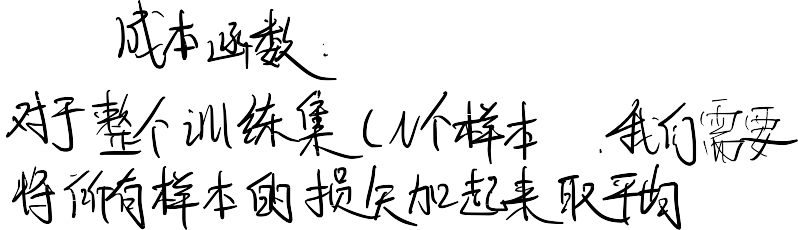 成本函数：
对于整个训练集（N个样本，我们需要
将所有样本的损失加起来取平均